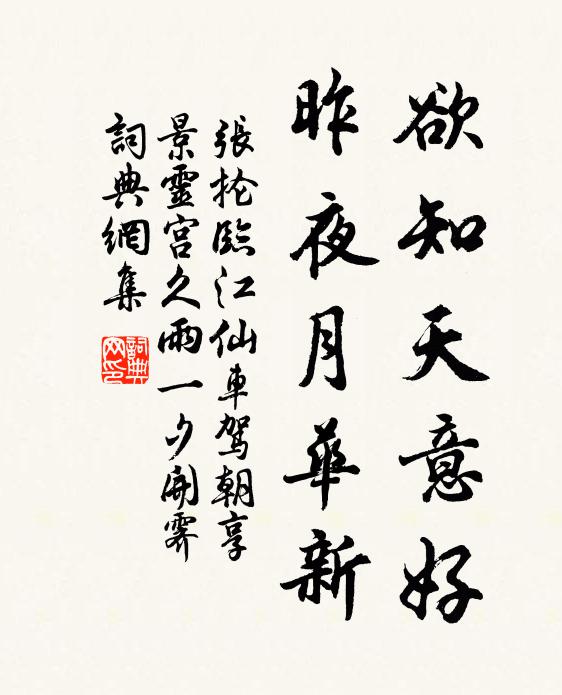 欲知天意好
昨夜月華新
張掄臨江仙車駕朝享
景靈宮久雨一夕開霽
詞典網集
詞典網印